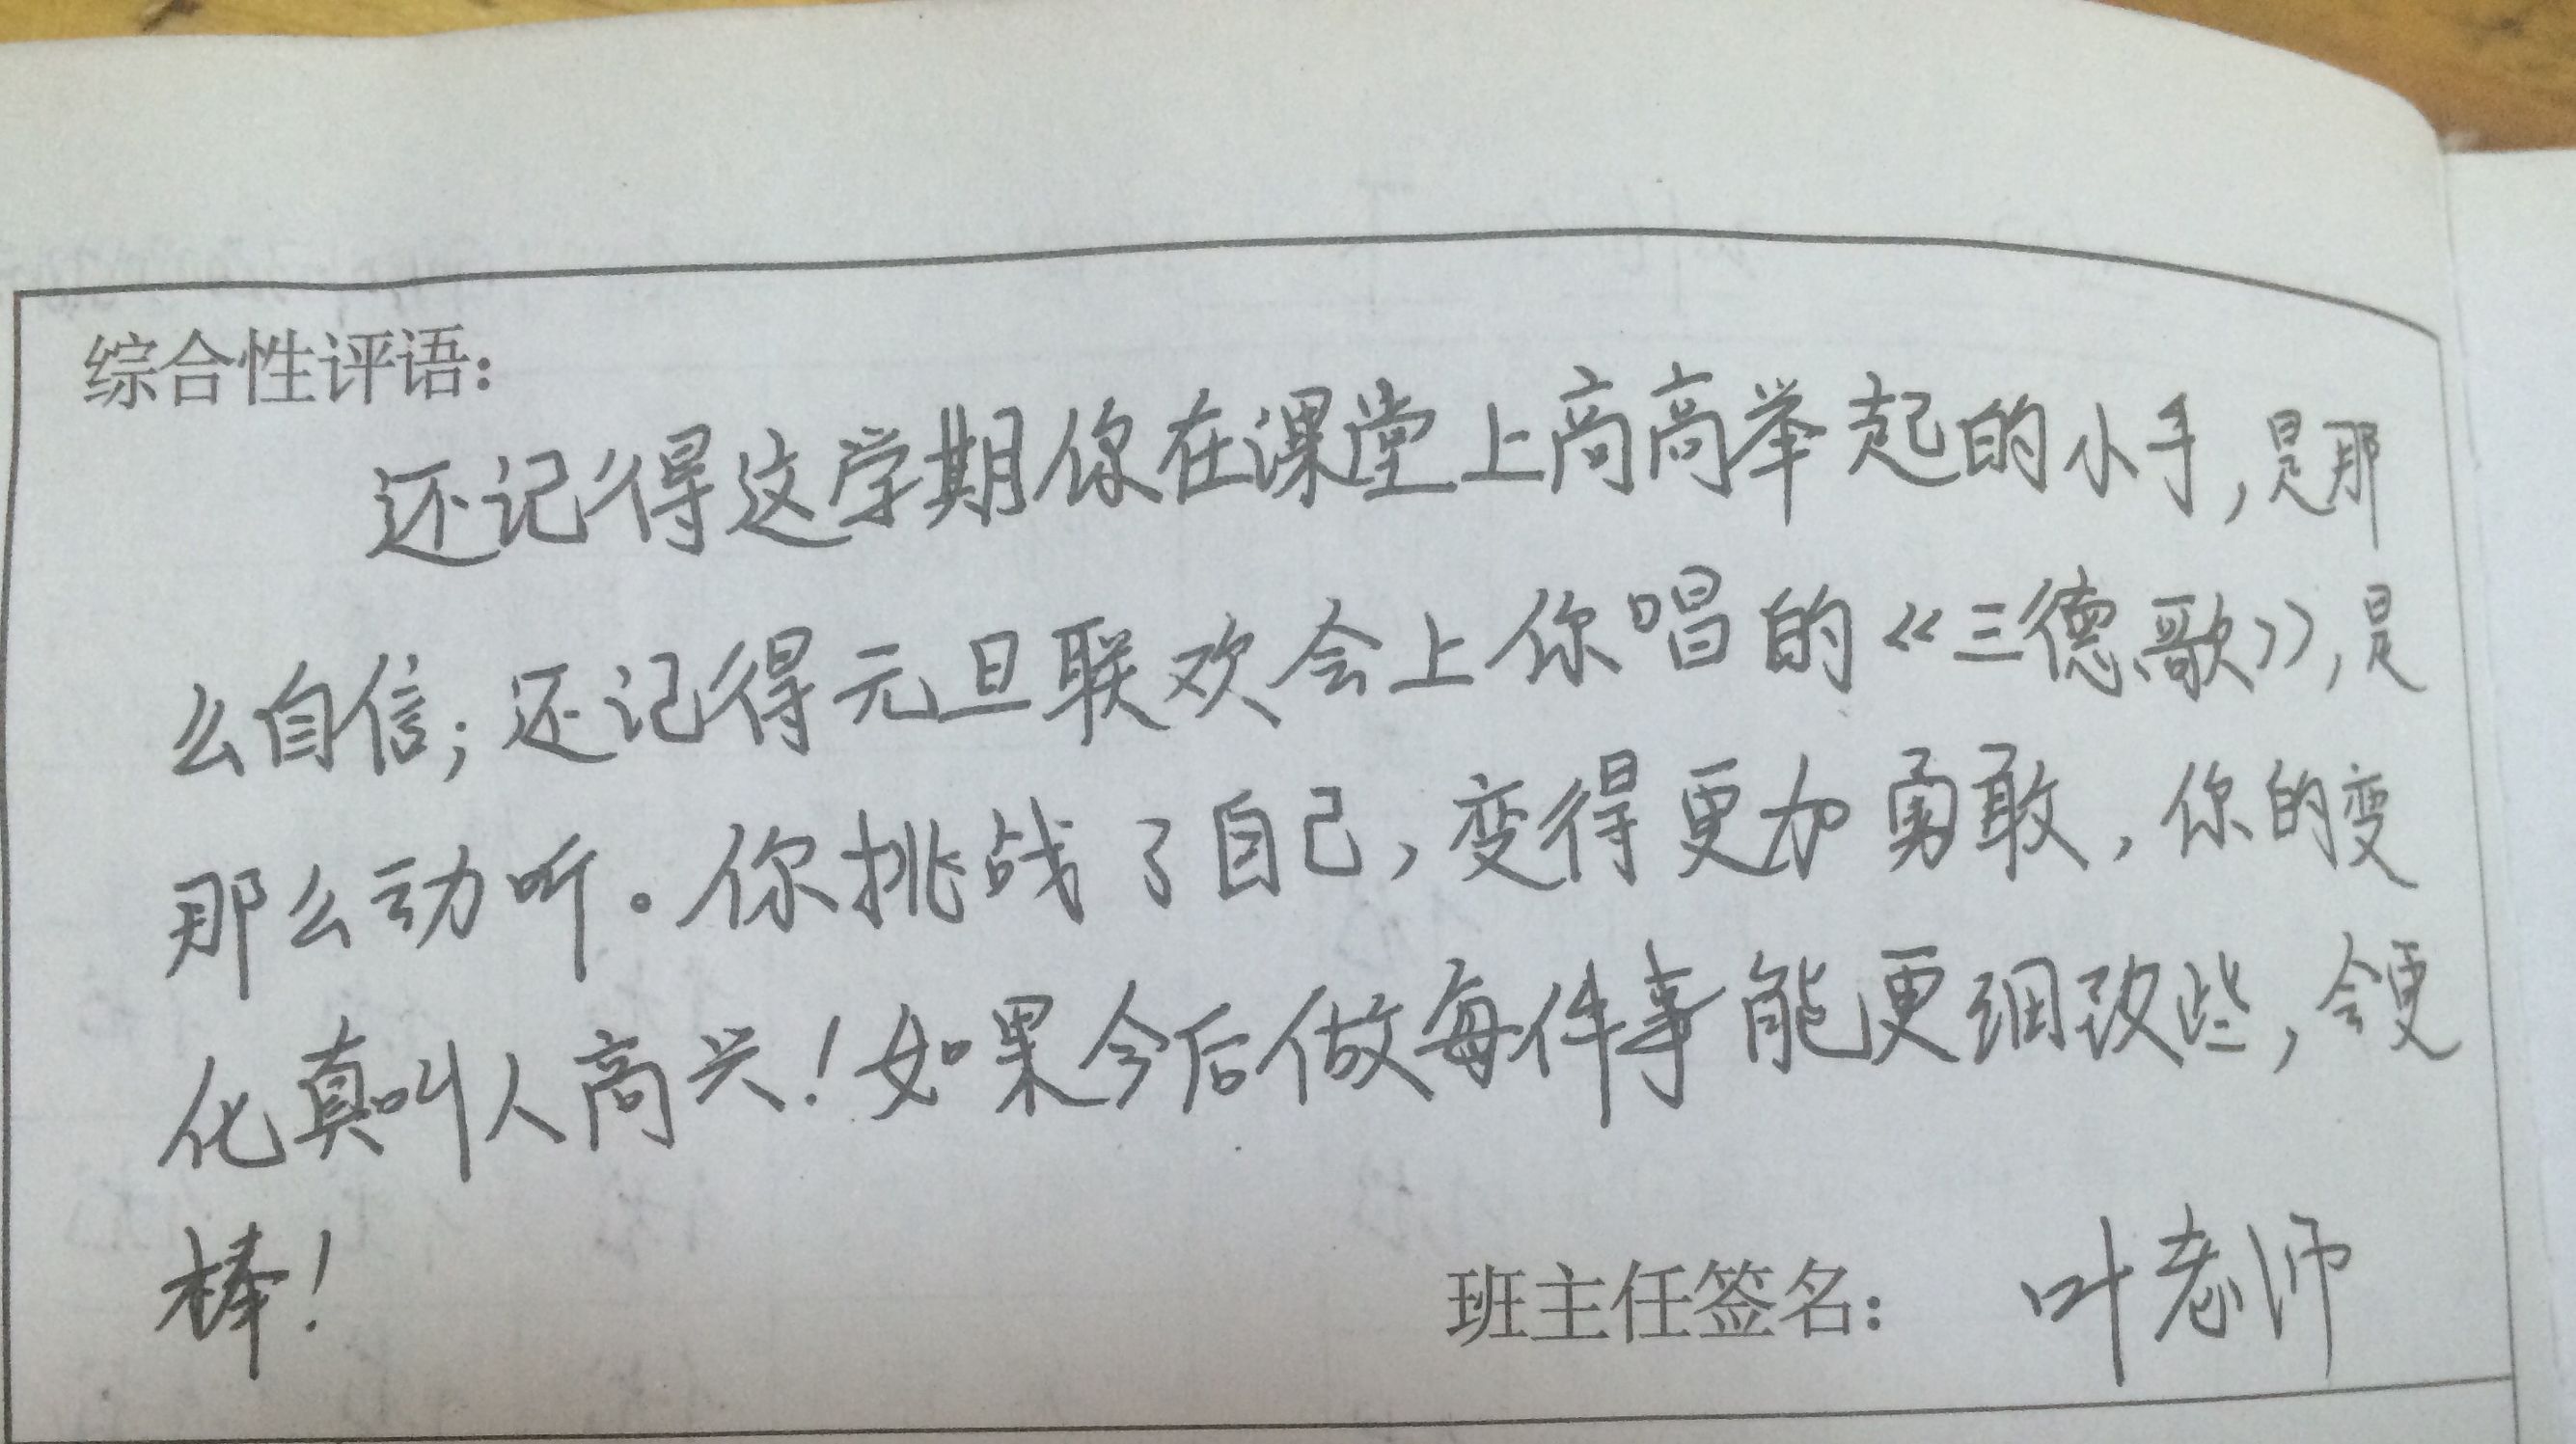 综合性评语：
还记得这学期你在课堂上高高举起的小手，是那
么自信；还记得元旦联欢会上你唱的《三德歌》，是
那么动听。你挑战了自己，变得更加勇敢，你的变
化真叫人高兴！如果今后做每件事能更细致些，会更
棒！
班主任签名： 叶老师